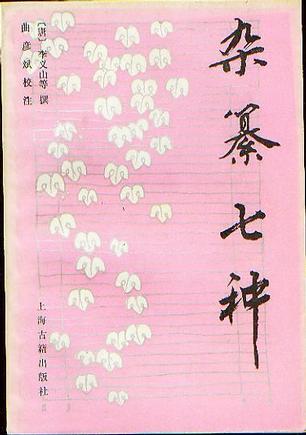 杂纂七种
〔唐〕李义山等 撰
曲彦斌 校注
上海古籍出版社